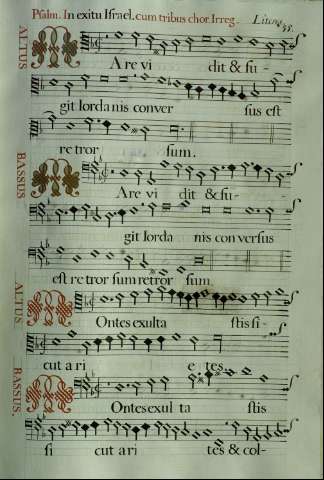 Psalm. In exitu Israel. cum tribus chor. Irreg.
ALTUS
M Are vi dit & fu-
git Iorda nis conver sus est
re tror sum.
BASSUS
M Are vi dit & fu-
git Iorda nis con versus
est re tror sum retror sum.
ALTUS
M Ontes exulta stis si-
cut a ri e tes.
BASSUS.
M Ontes exul ta stis
si cut a ri tes & col-